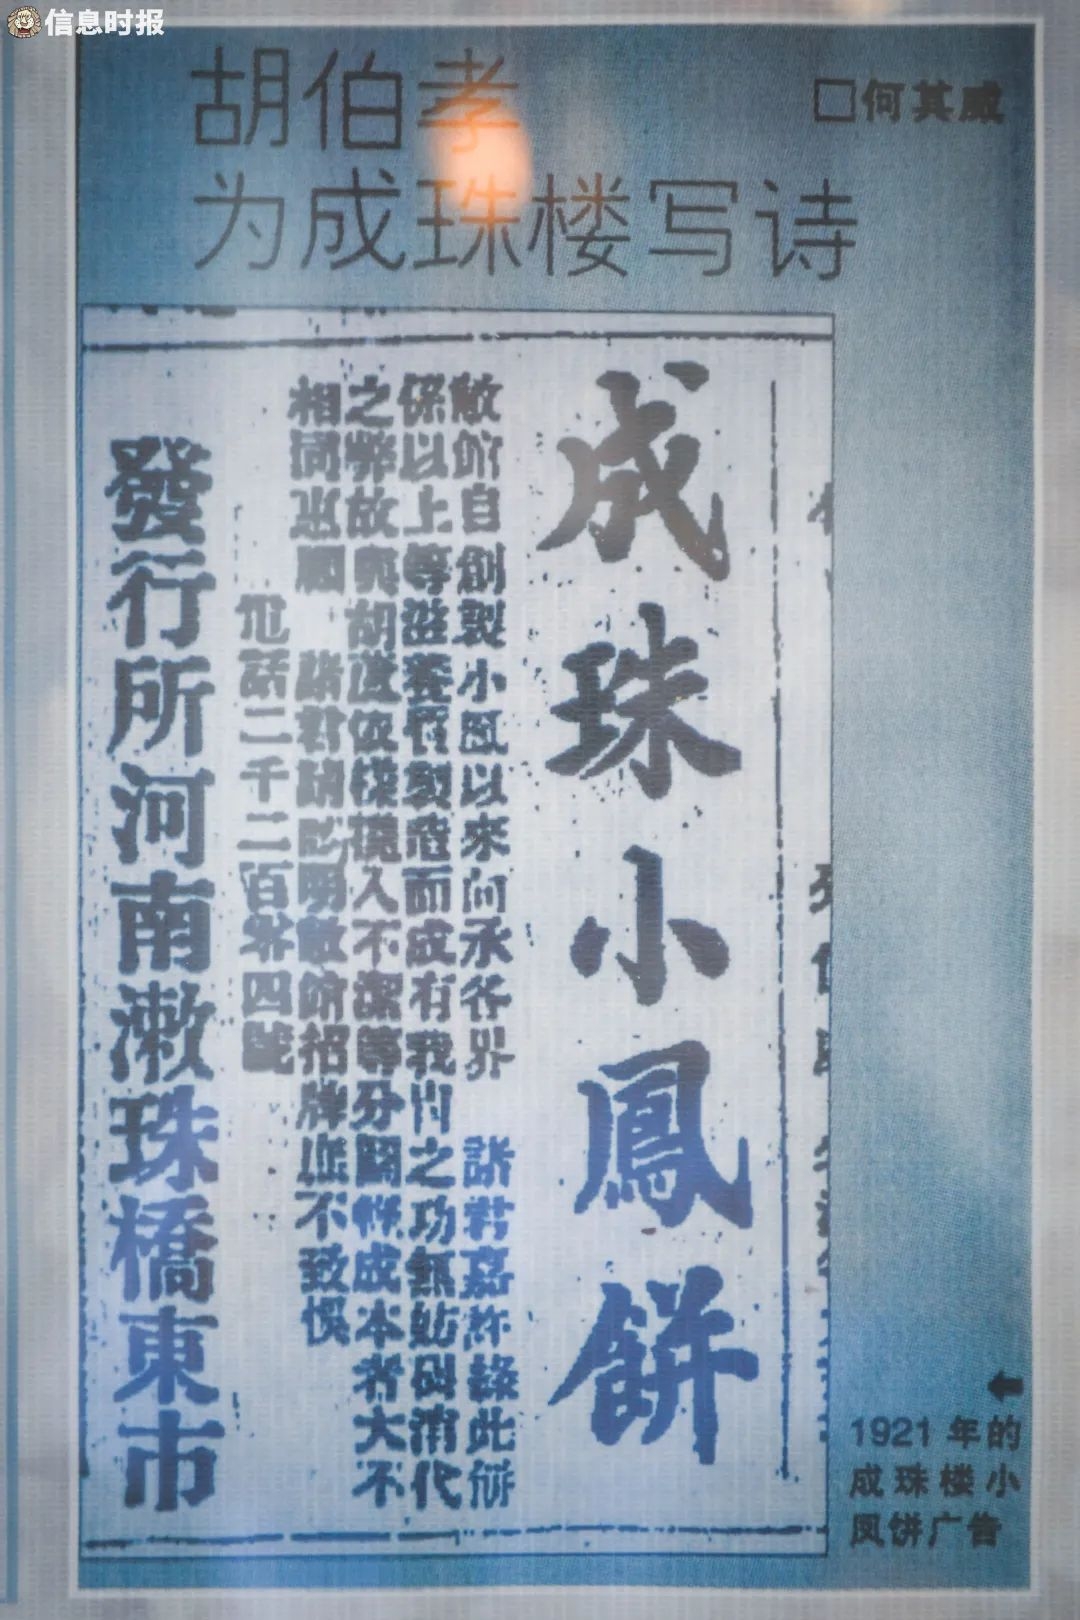 信息时报
胡伯孝
为成珠楼写诗
□何其威
成珠小鳳餅
敝館自創製小鳳以來向承各界 諸君嘉許緣此餅
保以上等滋養 製造而成有我 之功無 消代
之弊故與胡 入不潔等分 成本者大不
相同惠顧 諸君請 明敝館招牌庶不致悞
話二千二百零四號
發行所河南漱珠橋東市
1921年的
成珠楼小
凤饼广告